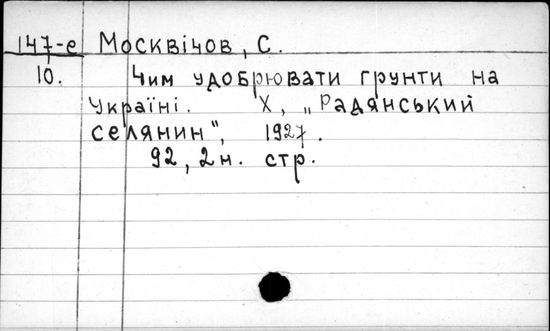 147-е Москвічов, С.
10. Чим удобрювати грунти на
Україні. Х, „Радянський
селянин", 1927.
92, 2н. стр.